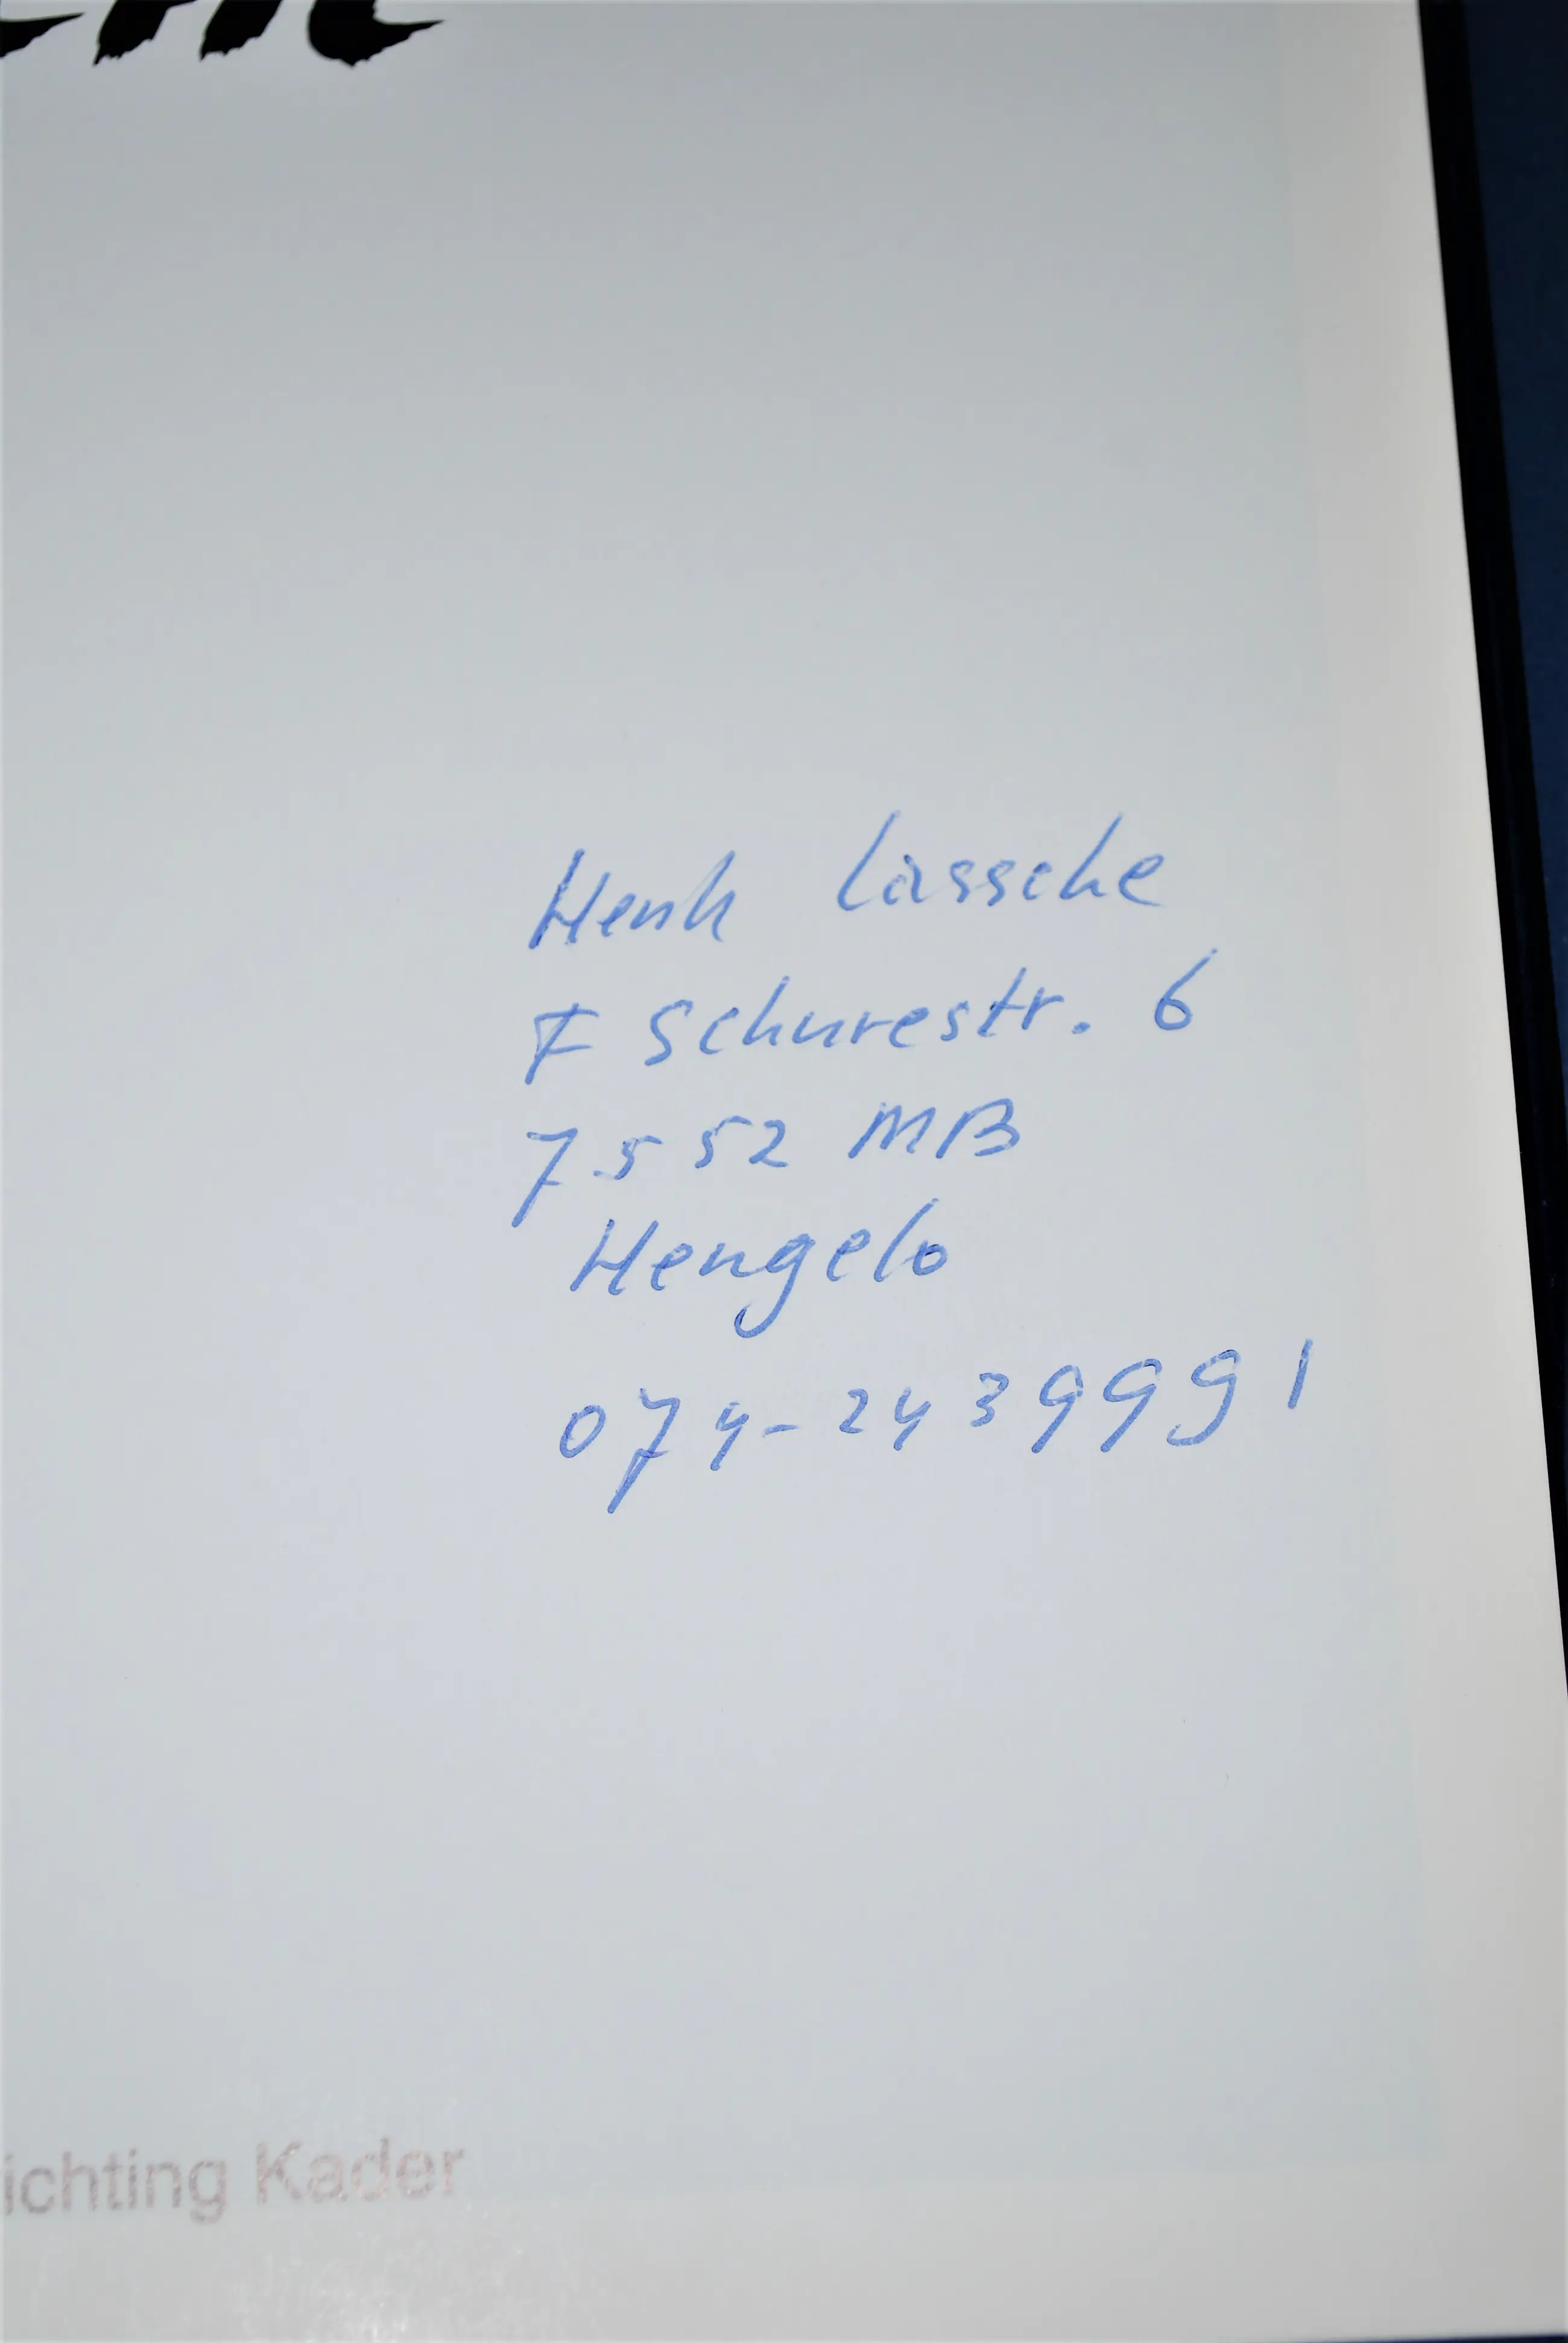 Henk Lassche
F Schurestr. 6
7552 MB
Hengelo
074-2439991
ichting Kader